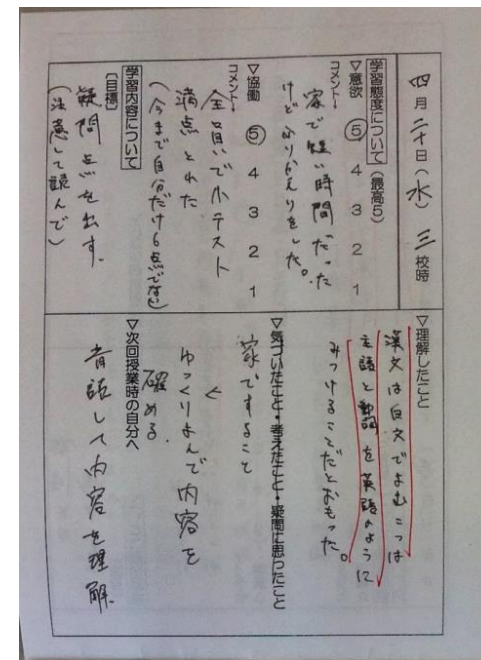 四月二十日(水)三校時
学習態度について(最高5)
▽意欲 ⑤ 4 3 2 1
コメント→
家で短い時間だった
けどふりかえりをした。
▽協働 ⑤ 4 3 2 1
コメント→
全員で小テスト
満点とれた
(今まで自分だけ6点でない)
学習内容について
【目標】
疑問点を出す。
(注意して読んで)
▽理解したこと
漢文は白文でよむこつは
主語と動詞を英語のように
みつけることだとおもった。
▽気づいたこと・考えたこと・疑問に思ったこと
家ですること
ゆっくりよんで内容を
確める
▽次回授業時の自分へ
音読して内容を理解